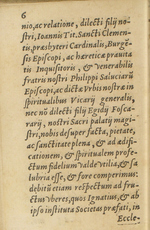 6
nio, ac relatione, dilecti filij no-
stri, Ioannis Tit. Sancti Clemen-
tis, præsbyteri Cardinalis, Burgē-
sis Episcopi, ac hæreticæ prauita
tis Inquisitoris, & venerabilis
fratris nostri Philippi Saluciarū
Episcopi, ac dictæ Vrbis nostræ in
spiritualibus Vicarij generalis,
nec nō dilecti filij Egidij Fosca-
rarij, nostri Sacri palatij magi-
stri, nobis desuper facta, pietate,
ac sanctitate plena, & ad ædifi-
cationem, & spiritualem profe-
ctum fidelium valde vtilia, & sa
lubria esse, & fore comperimus:
debitū etiam respectum ad fru-
ctus vberes, quos Ignatius, & ab
ipso instituta Societas præfati, in
Eccle-